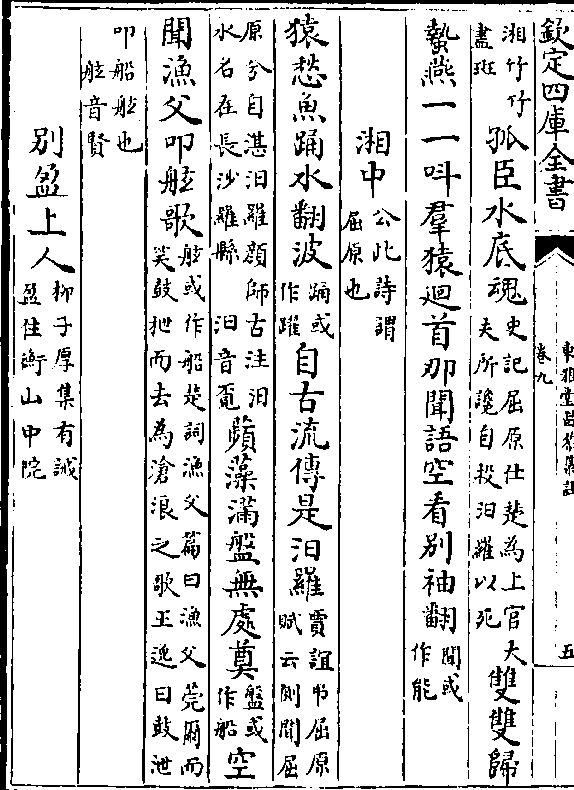 欽定四庫全書
東雅堂昌黎集註
卷九
五
湘竹竹盡斑孤臣水底魂史記屈原仕楚為上官大夫所讒自投汨羅以死雙雙歸
蟄燕一一呌羣猿迴首那聞語空看别袖翻聞或作能
湘中公此詩謂屈原也
猿愁魚踊水翻波踊或作躍自古流傳是汨羅賈誼弔屈原賦云側聞屈
原兮自湛汨羅顔師古注汨水名在長沙羅縣汨音覔蘋藻滿盤無處奠盤或作船空
聞漁父叩舷歌舷或作船楚詞漁父篇曰漁父莞爾而笑鼓枻而去為滄浪之歌王逸曰鼓泄
叩船舷也舷音賢
别盈上人栁子厚集有誡盈住衡山中院